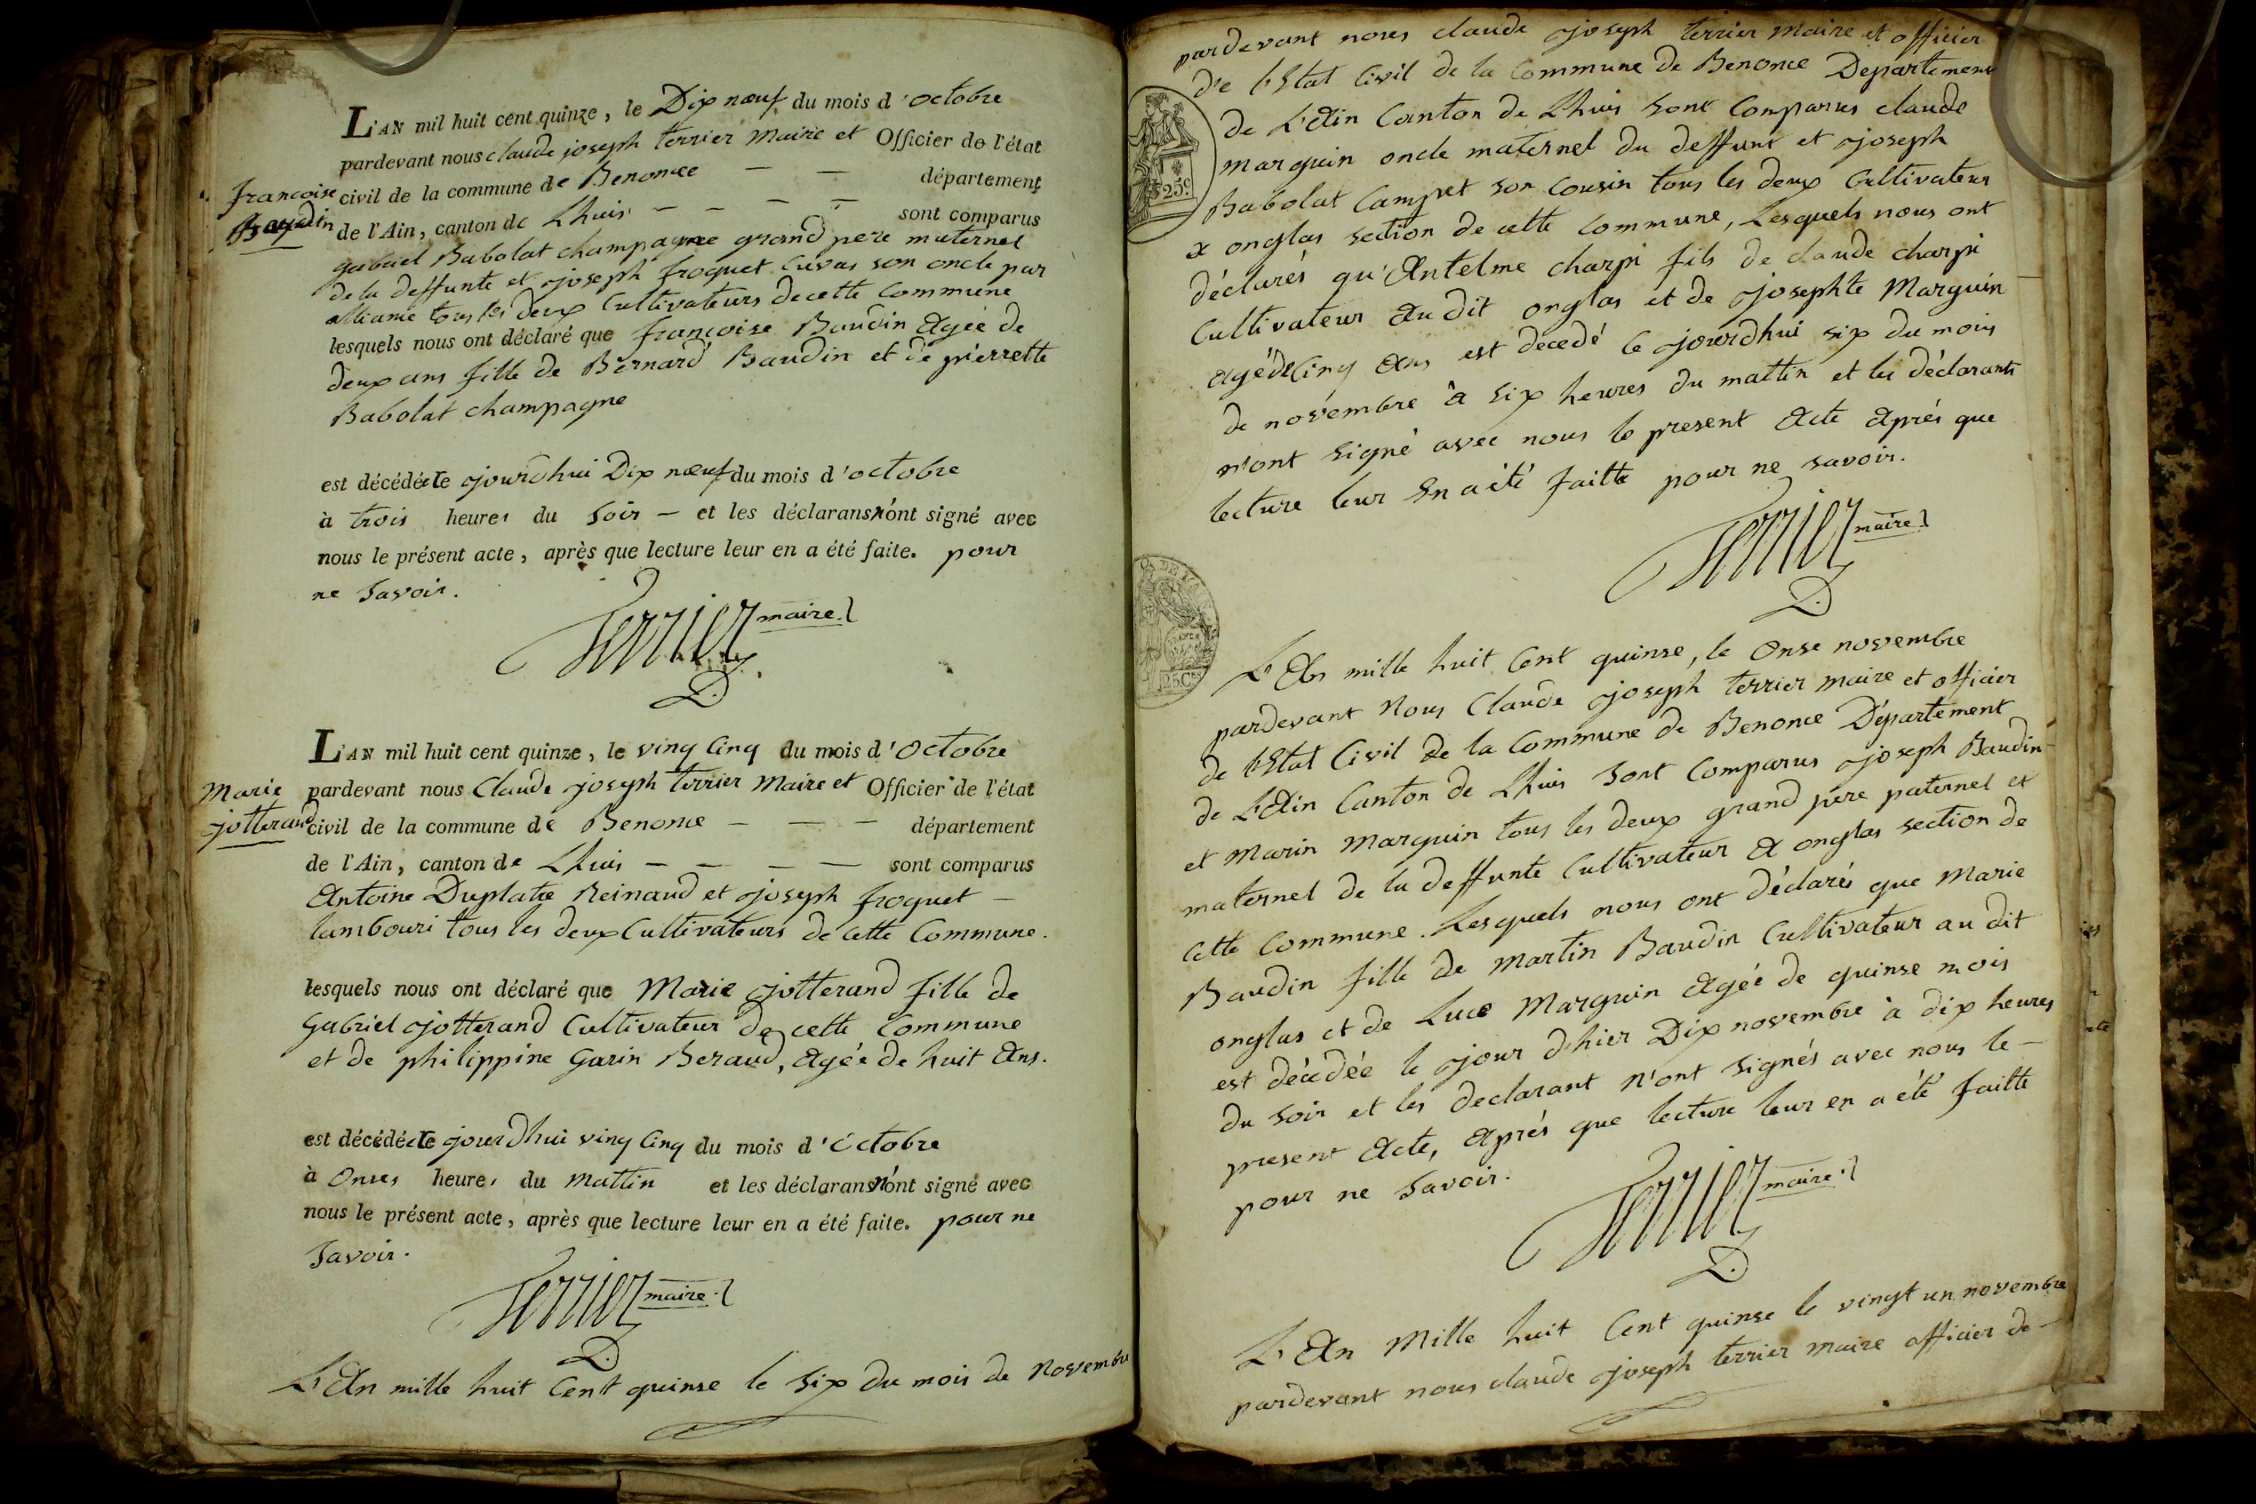 L'AN mil huit cent quinze, le Dix nœuf du mois d'octobre
pardevant nous claude joseph terrier Maire et Officier de l'état
civil de la commune de Benonce — — département
de l'Ain, canton de Lhuis — — — — sont comparus
francoise
Baudin
gabriel Babolat champagne grand pere maternel
de la deffunte et joseph froquet cuvas son oncle par
alliance tous les deux Cultivateurs de cette Commune
lesquels nous ont déclaré que françoise Baudin Agée de
deux ans fille de Bernard Baudin et de pierrette
Babolat champagne
est décédée le jourdhui Dix nœuf du mois d'octobre
à trois heures du Soir — et les déclarans n'ont signé avec
nous le présent acte, après que lecture leur en a été faite. pour
ne Savoir.
Terrier maire
L'AN mil huit cent quinze, le ving Cinq du mois d'Octobre
pardevant nous Claude joseph terrier Maire et Officier de l'état
civil de la commune de Benonce — — — département
de l'Ain, canton de Lhuis — — — — sont comparus
Marie
jotterand
Antoine Duplatre Reinaud et joseph froquet —
lambouri tous les deux Cultivateurs de cette Commune.
lesquels nous ont déclaré que Marie jotterand fille de
Gabriel jotterand Cultivateur de cette Commune
et de philippine Garin Beraud, Agée de huit Ans.
est décédée le jourdhui ving Cinq du mois d'Octobre
à Onses heures du Mattin et les déclarans n'ont signé avec
nous le présent acte, après que lecture leur en a été faite. pour ne
Savoir.
Terrier maire
L'An mille huit Cent quinse le Six du mois de Novembre
pardevant nous claude joseph terrier Maire et officier
de l'Etat Civil de la Commune de Benonce Département
de L'Ain Canton de Lhuis Sont Comparus claude
marguin oncle maternel du deffunt et joseph
Babolat Campet son Cousin tous les deux Cultivateurs
a onglas section de cette Commune, Lesquels nous ont
déclarés qu'Antelme charpi fils de claude charpi
Cultivateur Audit onglas et de josephte Marguin
agé de Cinq Ans est decedé le jourdhui six du mois
de novembre à Six heures du mattin et les déclarants
n'ont signé avec nous le present Acte Après que
lecture leur En a été faitte pour ne savoir.
25C
Terrier maire
25Ces
L'An mille huit Cent quinse, le Onse novembre
pardevant Nous Claude joseph terrier maire et officier
de l'Etat Civil de la Commune de Benonce Département
de L'Ain Canton de Lhuis Sont Comparus joseph Baudin
et Marin Marguin tous les deux grand père paternel et
maternel de la deffunte Cultivateur A onglas section de
Cette Commune. Lesquels nous ont déclarés que Marie
Baudin fille de Martin Baudin Cultivateur au dit
onglas et de Luce Marguin Agée de quinse mois
est décédée le jour d'hier Dix novembre à dix heures
du soir et les declarant N'ont Signés avec nous le —
present Acte, Après que lecture leur en a été faitte
pour ne Savoir.
Terrier maire
L'An Mille huit Cent quinse le vingt un novembre
pardevant nous claude joseph terrier maire officier de —